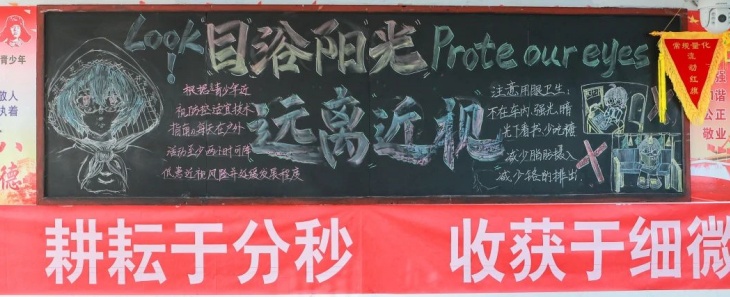 Look!
"目"浴阳光
Prote our eyes
远离近视
根据《青少年近
视防控适宜技术
指南》每天在户外
活动至少两小时可降
低患近视风险并延缓发展程度
注意用眼卫生:
不在车内、强光、暗
光下看书 少吃糖
减少脂肪摄入
减少铬的排出
常规量化
流动红旗
青少年
执着
德
和谐
公正
敬业
耕耘于分秒
收获于细微